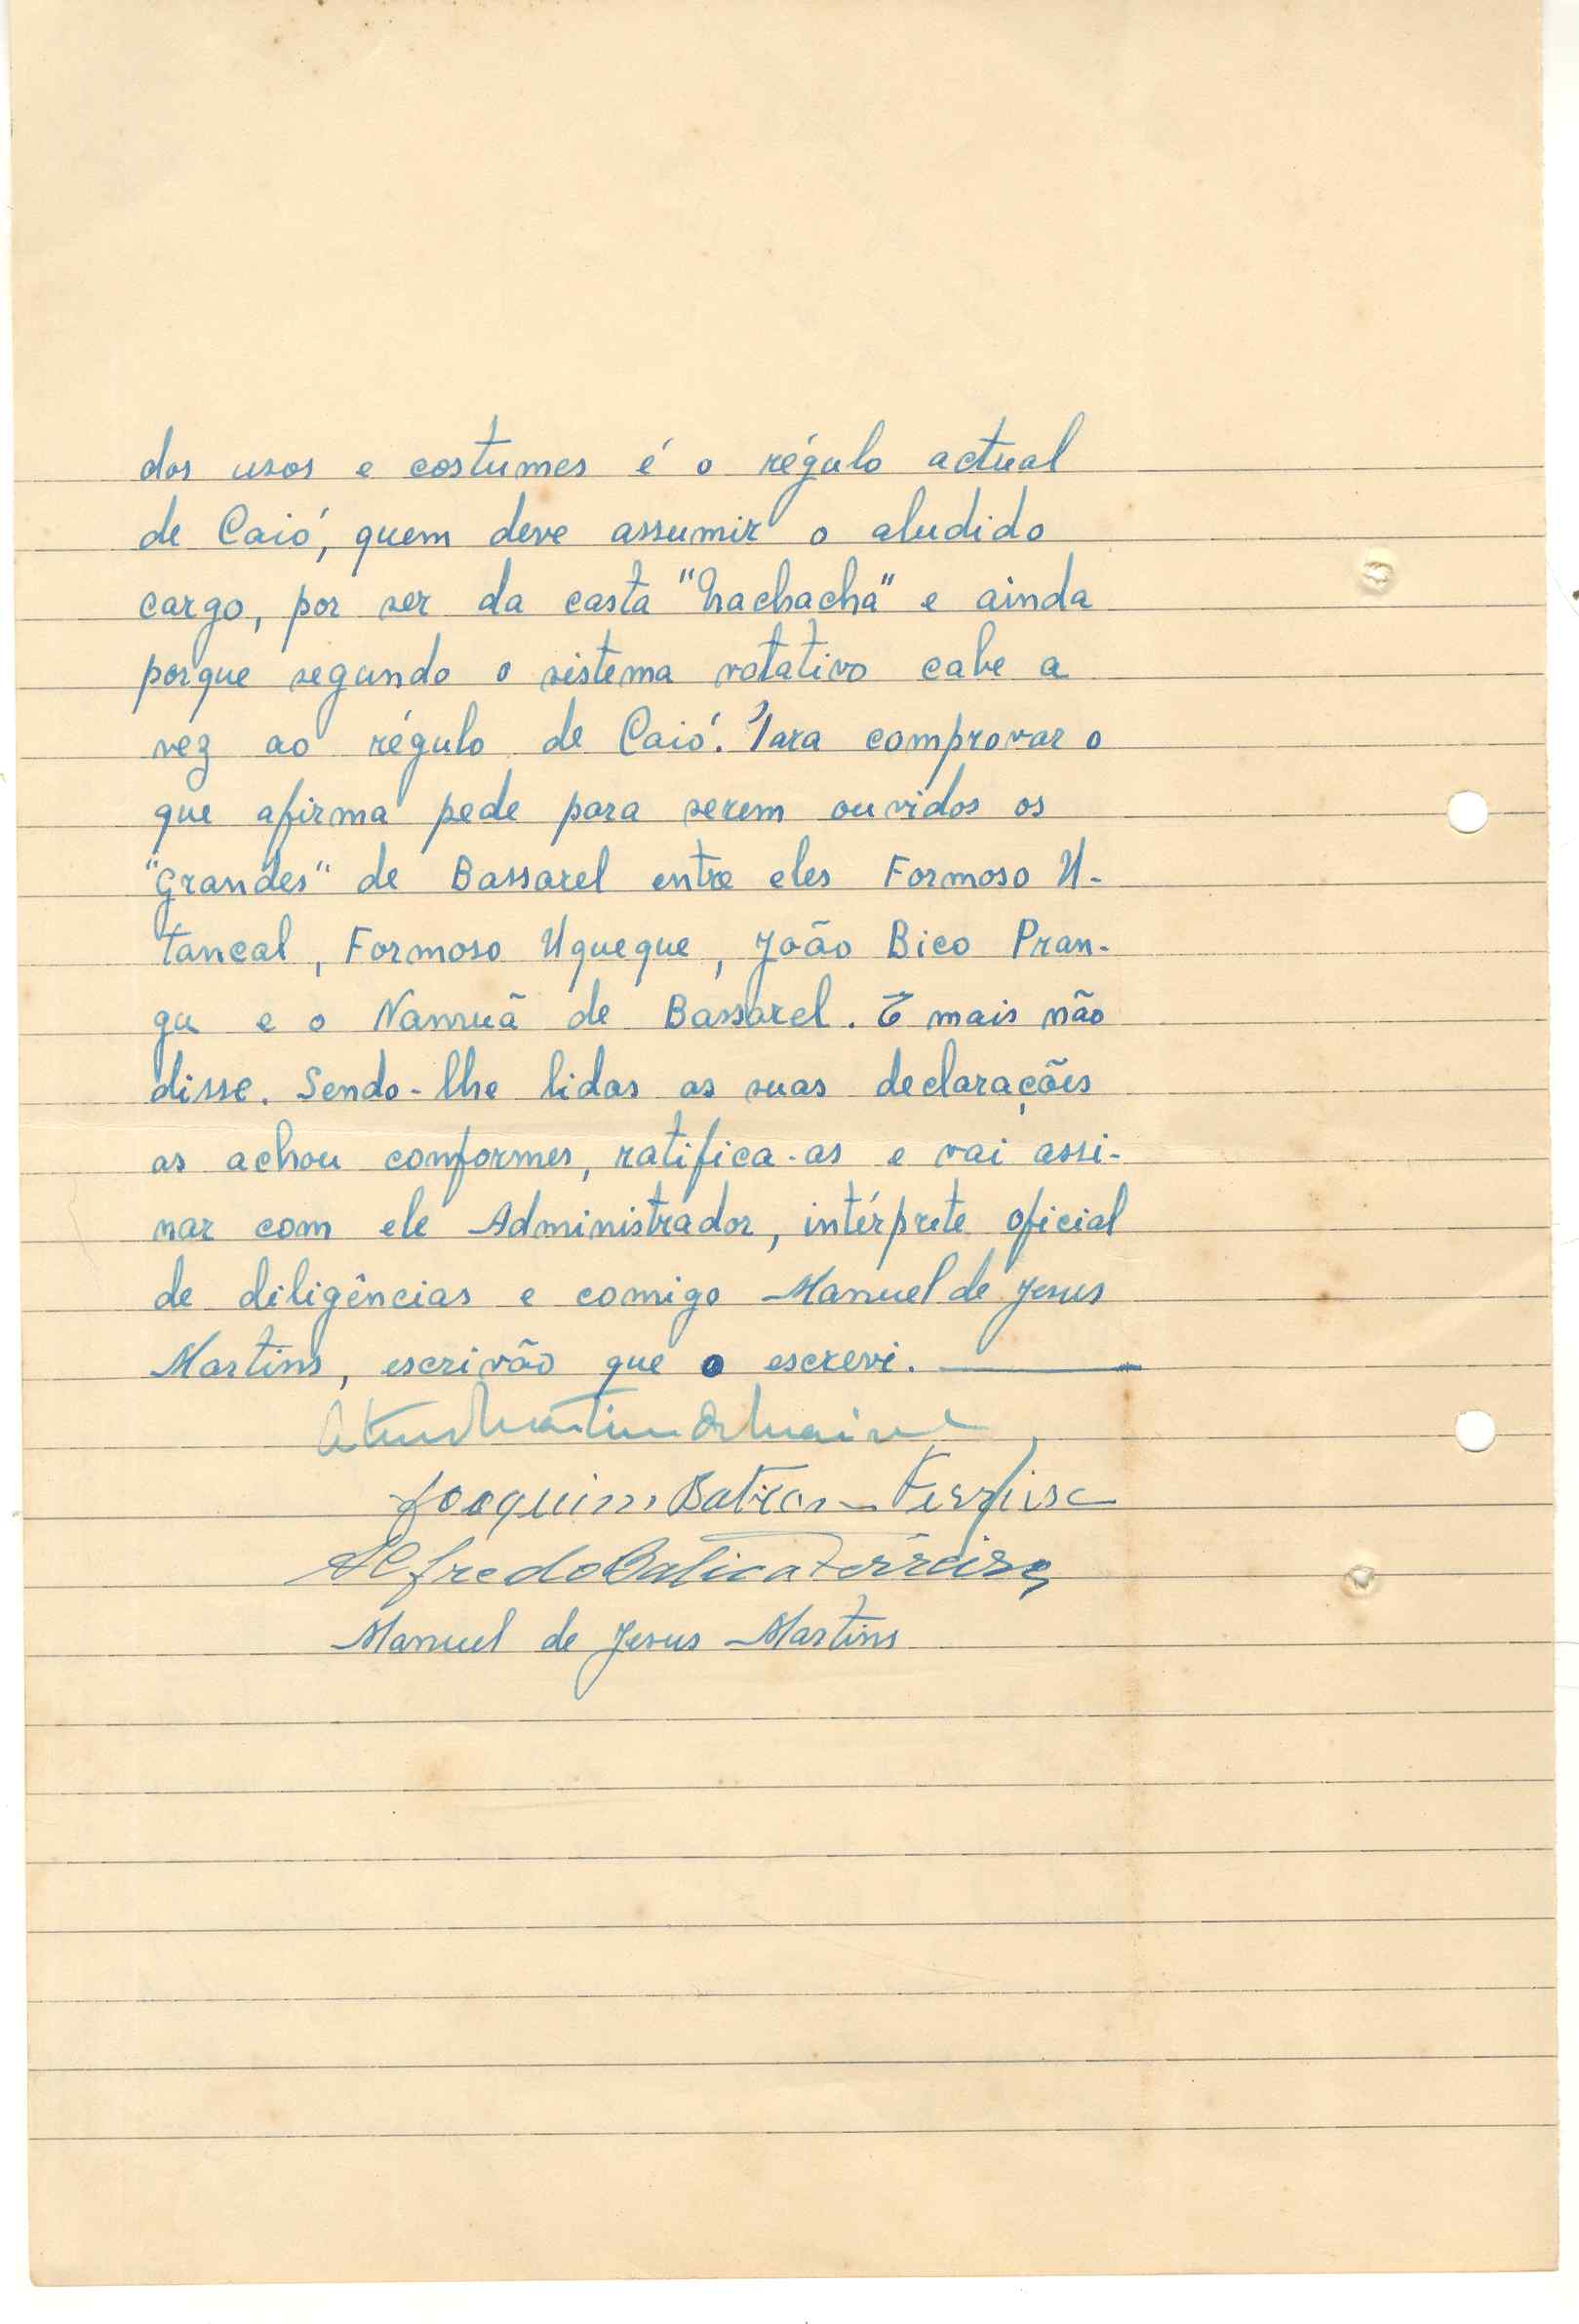 dos usos e costumes é o régulo actual
de Caió, quem deve assumir o aludido
cargo, por ser da casta "bachachã" e ainda
porque segundo o sistema rotativo cabe a
vez ao régulo de Caió. Para comprovar o
que afirma pede para serem ouvidos os
"Grandes" de Bassarel entre eles Formoso U-
tancal, Formoso Uqueque, João Bico Pran-
gu e o Namuã de Bassarel. E mais não
disse. Sendo-lhe lidas as suas declarações
as achou conformes, ratifica-as e vai assi-
nar com ele Administrador, intérprete oficial
de diligências e comigo Manuel de Jesus
Martins, escrivão que o escrevi.
Joaquim Batican Ferreira
Alfredo Batica Ferreira
Manuel de Jesus Martins